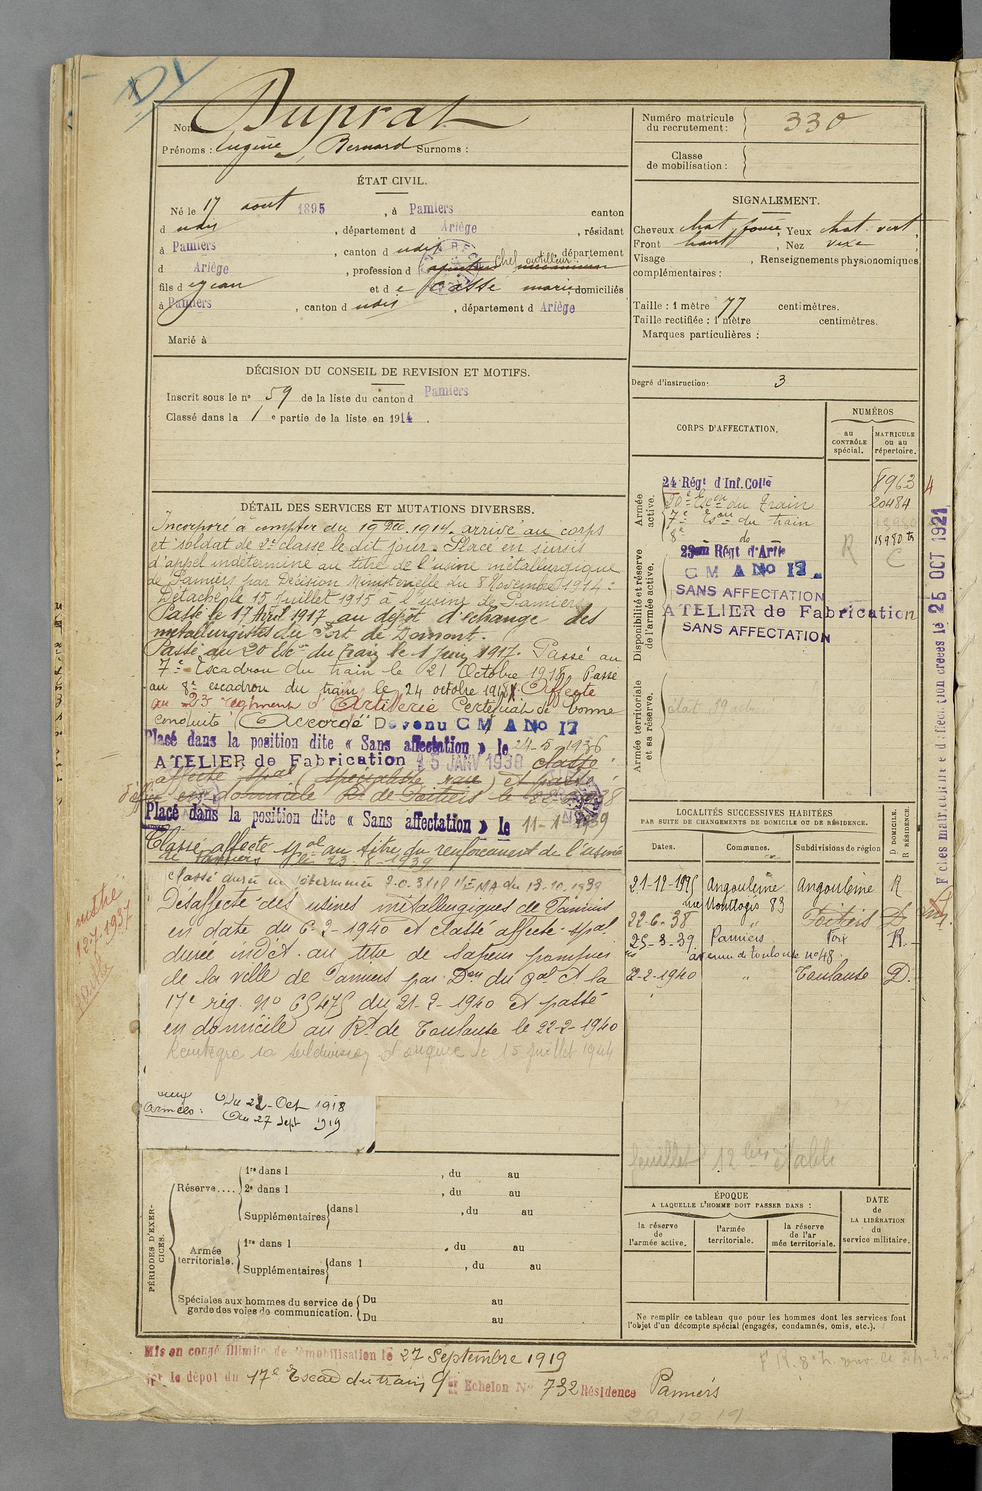 Nom Duprat
Prénoms : Eugène, Bernard Surnoms :
Numéro matricule du recrutement : 330
Classe de mobilisation :
ÉTAT CIVIL.
Né le 17 aout 1895, à Pamiers canton
d udis, département d Ariège, résidant
à Pamiers, canton d udis département
d Ariège, profession d Chef outilleur
fils d e jean et d e Casse marie domiciliés
à Pamiers, canton d udis, département d Ariège
Marié à
SIGNALEMENT.
Cheveux chat. foncé, Yeux chat. vert
Front haut, Nez vexe
Visage , Renseignements physionomiques
complémentaires :
Taille : 1 mètre 77 centimètres.
Taille rectifiée : 1 mètre centimètres.
Marques particulières :
Degré d'instruction : 3
DÉCISION DU CONSEIL DE REVISION ET MOTIFS.
Inscrit sous le n° 59 de la liste du canton d Pamiers
Classé dans la 1e partie de la liste en 1914.
CORPS D'AFFECTATION.
NUMÉROS
au CONTRÔLE spécial.
MATRICULE ou au répertoire.
Armée active.
24 Régt d'Inf. Colle 8963
20e Escon du Train 20484
7e Escon du train
8e do 15980 ts
Disponibilité et réserve de l'armée active.
23ème Régt d'Artie R C
C M A No 17
SANS AFFECTATION
ATELIER de Fabrication
SANS AFFECTATION
Armée territoriale et sa réserve.
DÉTAIL DES SERVICES ET MUTATIONS DIVERSES.
Incorporé à compter du 19 Dec. 1914. arrivé au corps
et soldat de 2e classe le dit jour. Placé en sursis
d'appel indéterminé au titre de l'usine métallurgique
de Pamiers par Décision Ministérielle du 8 Novembre 1914.
Détaché le 15 Juillet 1915 à l'usine de Pamiers
Passé le 17 Avril 1917 au dépôt d'échange des
métallurgistes du Fort de Domont.
Passé au 20 Esc. du train le 1 Juin 1917. Passé au
7e Escadron du train le 21 Octobre 1918 Passé
au 8e escadron du train le 24 octobre 1918. Affecté
au 23 régiment d'Artillerie Certificat de bonne
conduite "Accordé" Devenu C M A No 17
Placé dans la position dite « Sans affectation » le 24-5 1936
ATELIER de Fabrication 25 JANV 1938 classé
affecté spal (spécialiste usine) et passé
en domicile Rt de Poitiers le
Placé dans la position dite « Sans affectation » le 11-1-1939
Classé affecté spal au titre du renforcement de l'usine
de Pamiers le 23-8-1939
Classé durée indéterminée
Désaffecté des usines métallurgiques de Pamiers
en date du 6-2-1940 et classé affecté spal
durée indét. au titre de sapeur pompier
de la ville de Pamiers par Don du Gal Ct la
17e rég. No 65475 du 21-2-1940 et passé
en domicile au Rt de Toulouse le 22-2-1940
Réintégre sa subdivision d'origine le 15 juillet 1944
armées : Du 22 Oct 1918
Au 27 Sept 1919
LOCALITÉS SUCCESSIVES HABITÉES
PAR SUITE DE CHANGEMENTS DE DOMICILE OU DE RÉSIDENCE.
Dates. Communes. Subdivisions de région D DOMICILE. R RÉSIDENCE.
21-12-1925 Angoulême Angoulême R
rue Montlogis 83
22-6-38 " Poitiers D
25-3-39. Pamiers Foix R.
avenue de Toulouse no 48
2-2-1940 " Toulouse D.
feuillet 12 bis établi
ÉPOQUE
A LAQUELLE L'HOMME DOIT PASSER DANS :
la réserve de l'armée active.
l'armée territoriale.
la réserve de l'armée territoriale.
DATE de LA LIBÉRATION du service militaire.
Ne remplir ce tableau que pour les hommes dont les services font
l'objet d'un décompte spécial (engagés, condamnés, omis, etc.).
PÉRIODES D'EXERCICES.
Réserve....
1re dans l , du au
2e dans l , du au
Supplémentaires dans l , du au
Armée territoriale.
1re dans l , du au
Supplémentaires dans l , du au
Spéciales aux hommes du service de garde des voies de communication.
Du au
Du au
Mis en congé illimité de démobilisation le 27 Septembre 1919
le dépôt du 17e Escad du train 9e Echelon No 732 Résidence Pamiers
12-7-1937
25 OCT 1921